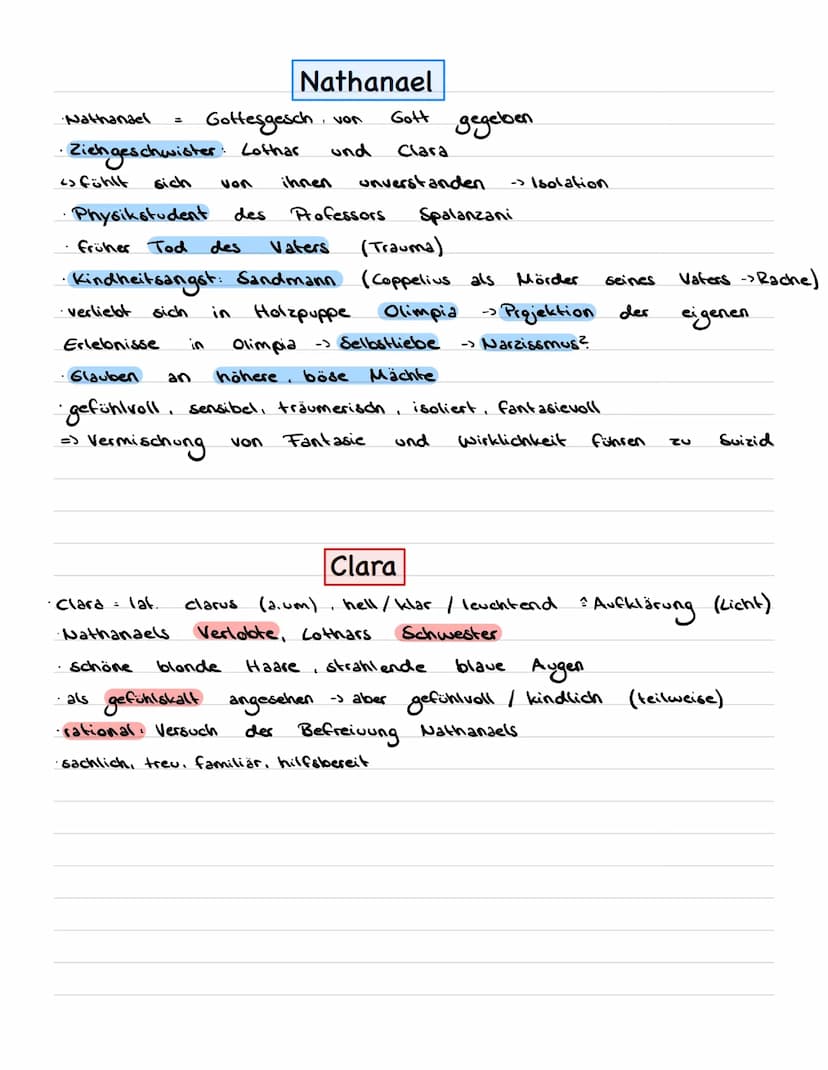 Nathanael
· Nathanael = Gottesgesch, von Gott gegeben
· Ziehgeschwister: Lothar und Clara
↳ fühlt sich von ihnen unverstanden -> Isolation
· Physikstudent des Professors Spalanzani
· früher Tod des Vaters (Trauma)
· Kindheitsangst: Sandmann (Coppelius als Mörder seines Vaters -> Rache)
· verliebt sich in Holzpuppe Olimpia -> Projektion der eigenen
Erlebnisse in Olimpia -> Selbstliebe -> Narzissmus?
· Glauben an höhere, böse Mächte
· gefühlvoll, sensibel, träumerisch, isoliert, fantasievoll
=> Vermischung von Fantasie und Wirklichkeit führen zu Suizid
Clara
· Clara = lat. clarus (a.um), hell / klar / leuchtend ≙ Aufklärung (Licht)
· Nathanaels Verlobte, Lothars Schwester
· schöne blonde Haare, strahlende blaue Augen
· als gefühlskalt angesehen -> aber gefühlvoll / kindlich (teilweise)
· rational: Versuch der Befreiung Nathanaels
· sachlich, treu, familiär, hilfsbereit